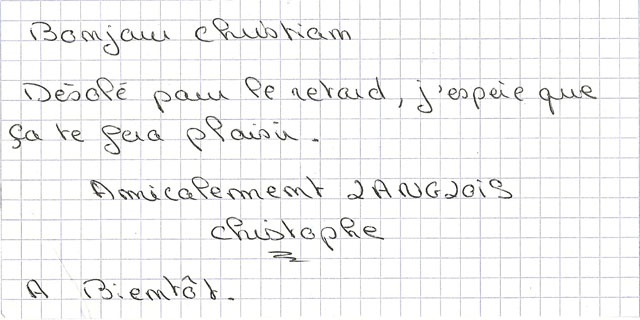 Bonjour Christian
Désolé pour le retard, j'espère que
ça te fera plaisir.
Amicalement LANGLOIS
Christophe
A Bientôt.